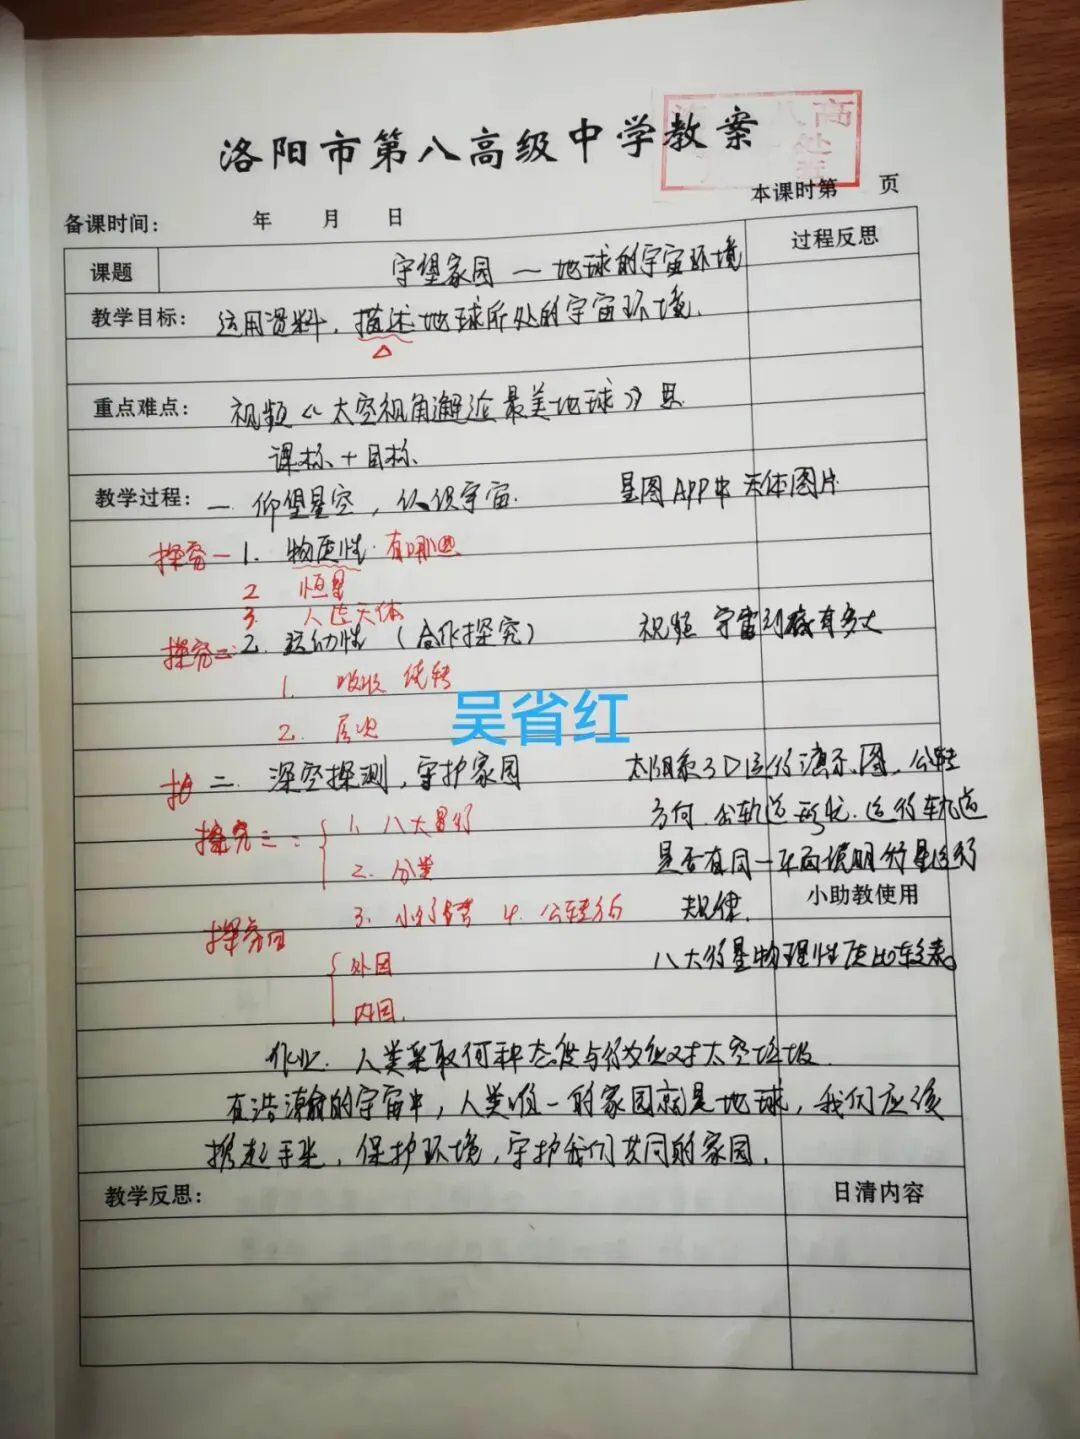 洛阳市第八高级中学教案
八高
处
本课时第 页
备课时间: 年 月 日
课题 守望家园 — 地球的宇宙环境 过程反思
教学目标: 运用资料，描述地球所处的宇宙环境.
重点难点: 视频《太空视角邂逅最美地球》思
课标 + 目标
教学过程: 一 仰望星空，认识宇宙. 星图APP中 天体图片
探究一 1. 物质性. 有哪些
2 恒星
3. 人造天体
探究二: 2. 运动性 (合作探究) 视频 宇宙到底有多大
1. 吸收 绕转
2. 层次
吴省红
二 深空探测，守护家园 太阳系3D运行演示图，公转
探究三: 1. 八大行 方向. 公轨道形状. 运行轨道
2. 分类 是否有同一平面说明行星运行
规律. 小助教使用
3. 小行 4. 公转方向
探究四
外因 八大行星物理性质比较表。
内因.
作业. 人类采取何种态度与行为应对太空垃圾.
在浩瀚的宇宙中，人类唯一的家园就是地球，我们应该
携起手来，保护环境，守护我们共同的家园.
教学反思: 日清内容